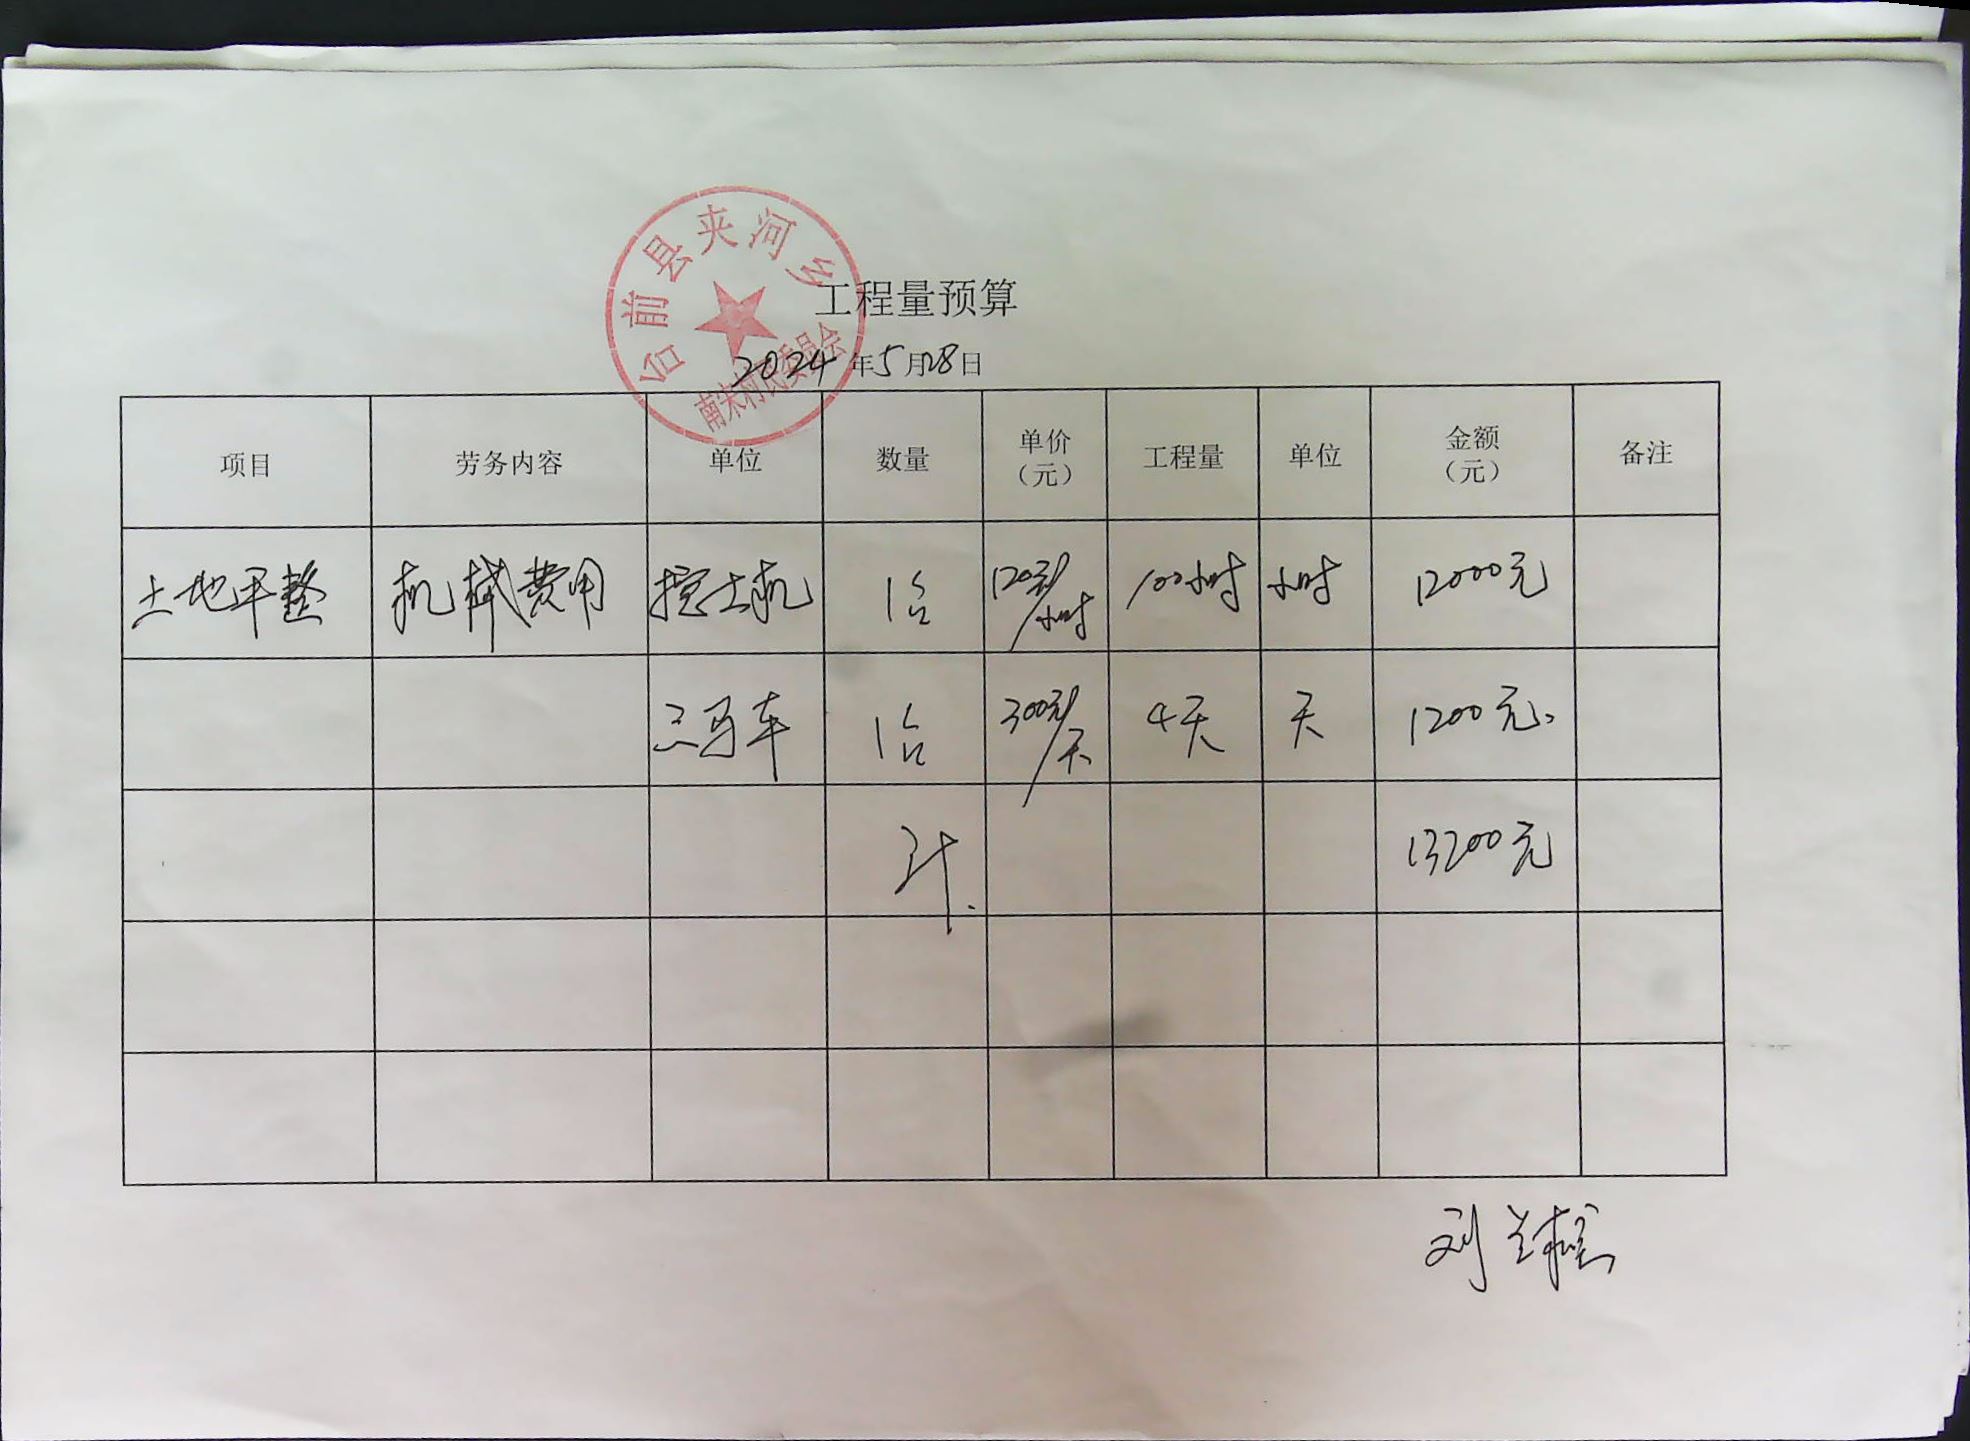 台前县夹河乡
南宋村民委员会
工程量预算
2024年5月28日
项目 劳务内容 单位 数量 单价（元） 工程量 单位 金额（元） 备注
土地平整 机械费用 挖土机 1台 120元/小时 100小时 小时 12000元
三马车 1台 300元/天 4天 天 1200元、
计. 13200元
刘兰松